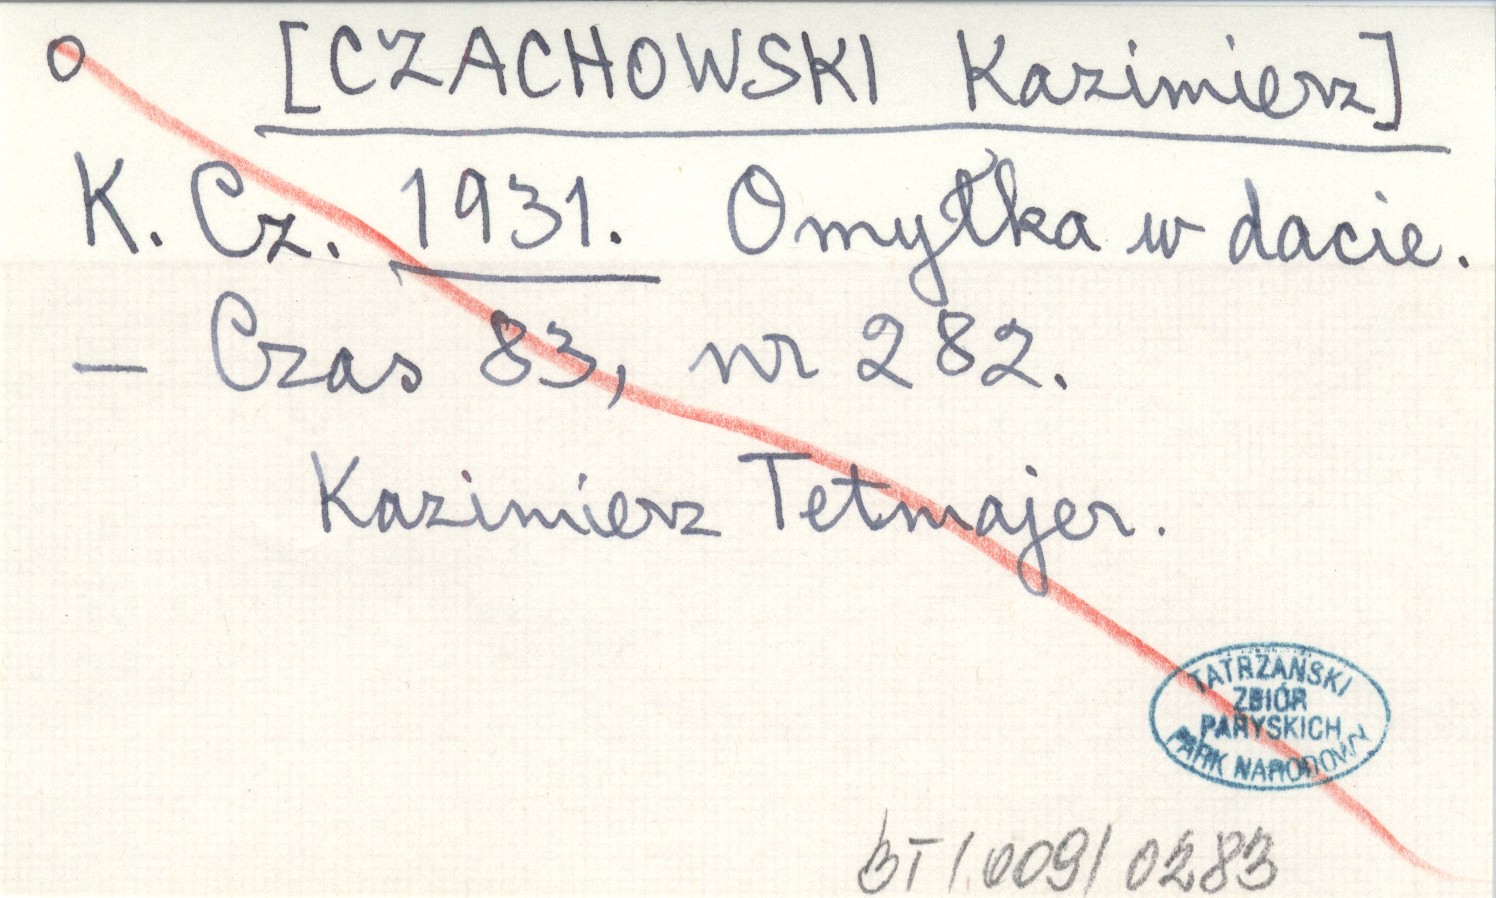 o [CZACHOWSKI Kazimierz]
K. Cz. 1931. Omyłka w dacie.
— Czas 83, nr 282.
Kazimierz Tetmajer.
TATRZAŃSKI
ZBIÓR
PARYSKICH
PARK NARODOWY
BT/.009/0283